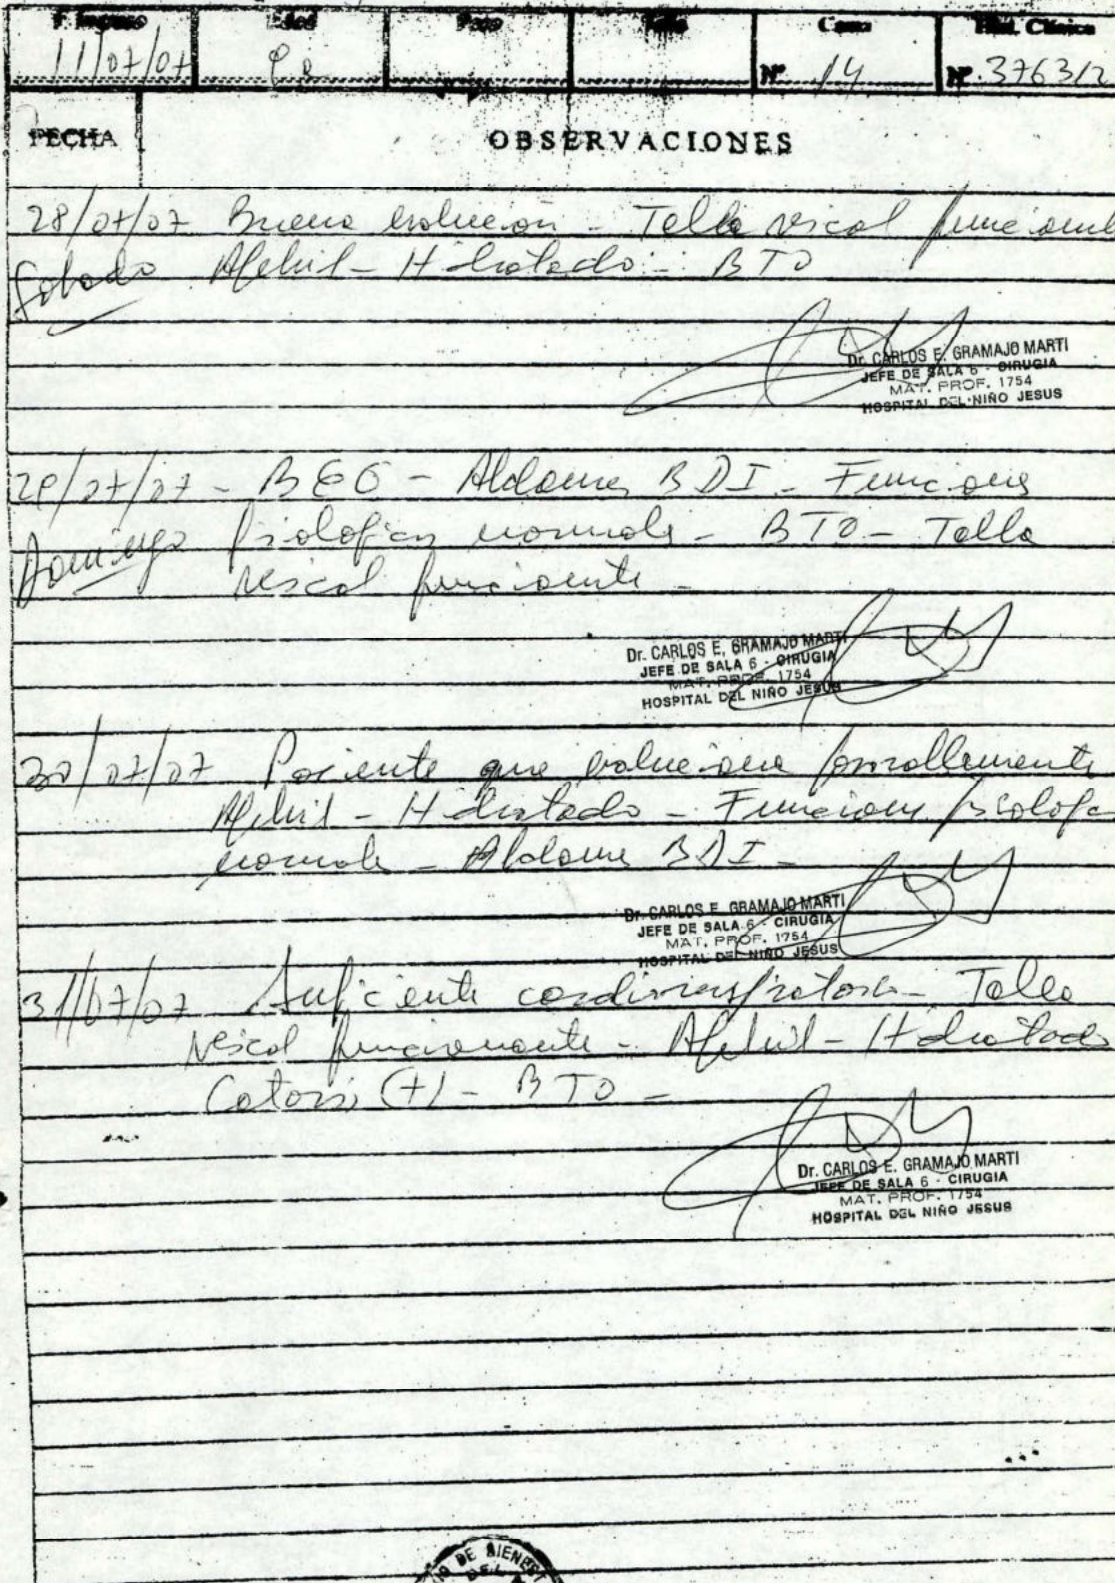 F. Ingreso Edad Peso Talla Cama Hist. Clínica
11/07/07 9 a Nº 14 Nº 37631/2
FECHA OBSERVACIONES
28/07/07 Buena evolución - Talla vesical funcionante
Sábado Afebril - Hidratado - BTO
Dr. CARLOS E. GRAMAJO MARTI
JEFE DE SALA 6 - CIRUGIA
MAT. PROF. 1754
HOSPITAL DEL NIÑO JESUS
29/07/07 - BEG - Abdomen BDI - Funciones
Domingo fisiológicas normales - BTO - Talla
vesical funcionante -
Dr. CARLOS E. GRAMAJO MARTI
JEFE DE SALA 6 - CIRUGIA
MAT. PROF. 1754
HOSPITAL DEL NIÑO JESUS
30/07/07 Paciente que evoluciona favorablemente
Afebril - Hidratado - Funciones fisiológicas
normales - Abdomen BDI -
Dr. CARLOS E. GRAMAJO MARTI
JEFE DE SALA 6 - CIRUGIA
MAT. PROF. 1754
HOSPITAL DEL NIÑO JESUS
31/07/07 Suficiente cardiorrespiratorio - Talla
vesical funcionante - Afebril - Hidratado
Catarsis (+) - BTO -
Dr. CARLOS E. GRAMAJO MARTI
JEFE DE SALA 6 - CIRUGIA
MAT. PROF. 1754
HOSPITAL DEL NIÑO JESUS
DE BIENES